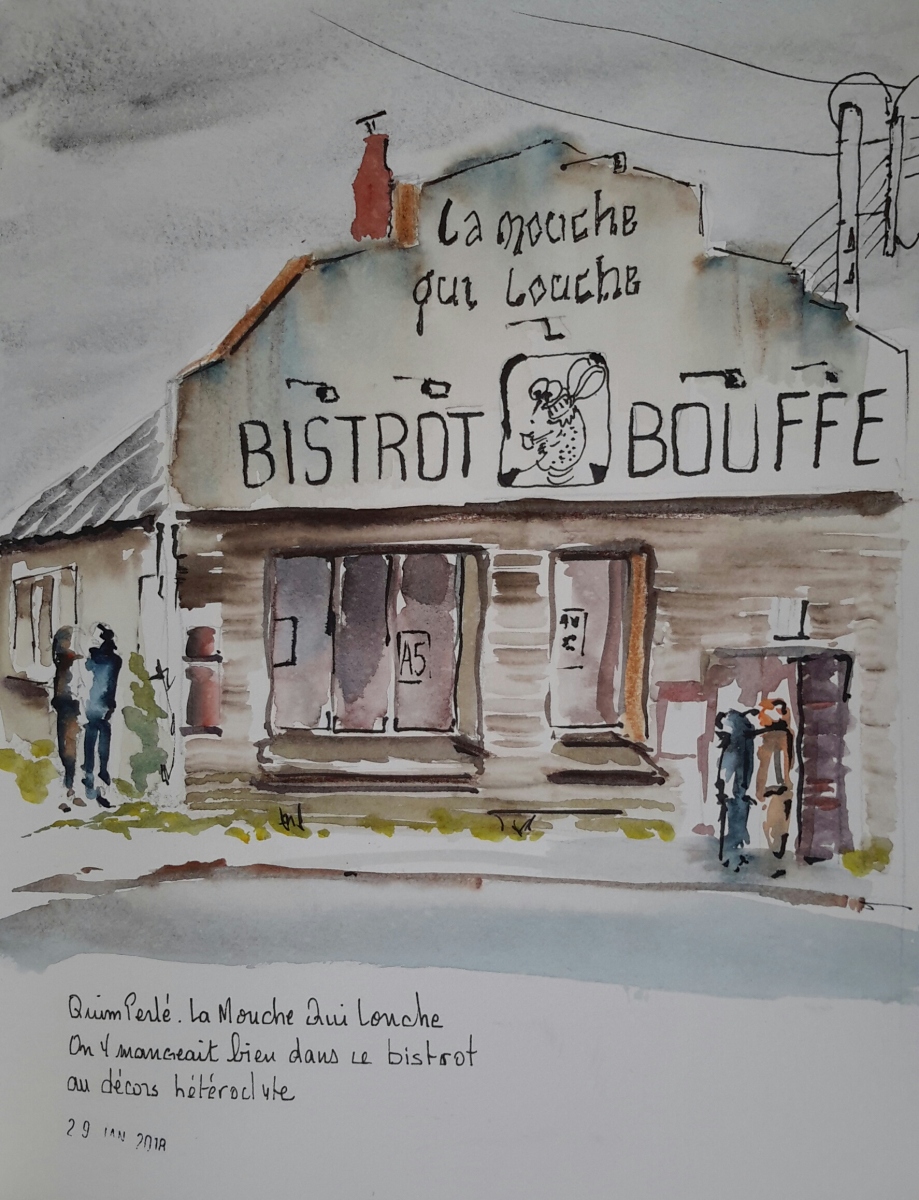 La mouche
qui Louche
BISTROT BOUFFE
A5
QuimPerlé. La Mouche Qui Louche
On Y mangeait bien dans ce bistrot
au décors hétéroclyte
29 JAN 2018